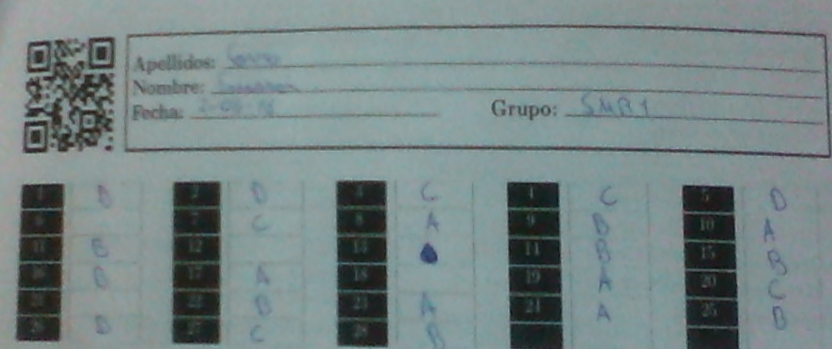 Apellidos:
Nombre:
Fecha: Grupo: SMB1
1 D 2 D 3 C 4 C 5 D
6 7 C 8 A 9 B 10 A
11 B 12 13 14 B 15 B
16 D 17 A 18 19 A 20 C
21 22 B 23 A 24 A 25 B
26 D 27 C 28 B